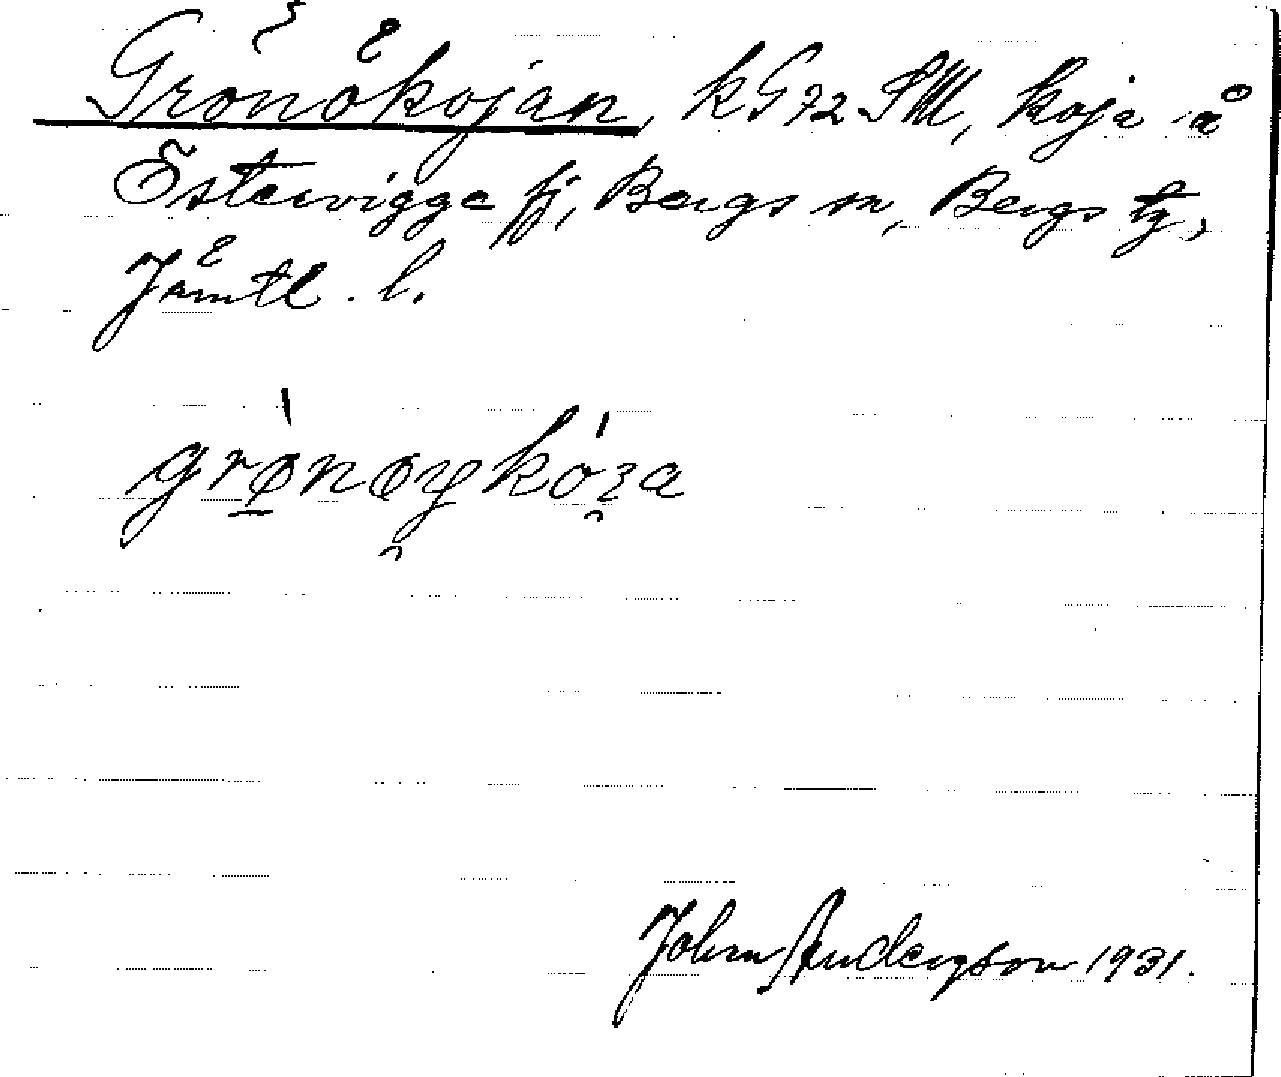 Grönökojan, kG72SM, koja å
Östervigge fj, Bergs sn, Bergs tg,
Jämtl. l.
grø̱̀nøykóʒa
John Anderson 1931.